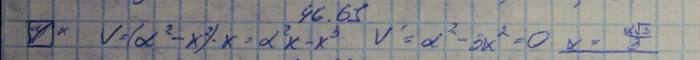 46.65
V=(α²-x²)·x=α²x-x³ V'=α²-3x²=0 x=